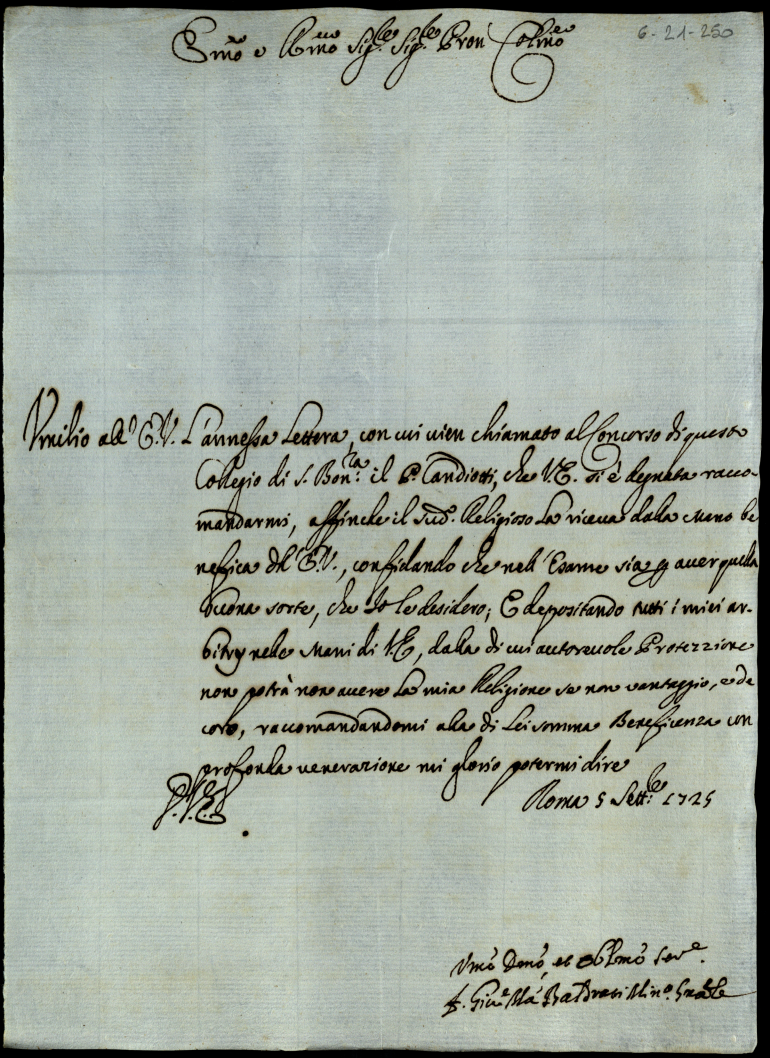 6-21-250
Emo e Rmo Sigre Sigre Pron Colmo
Umilio all' E.V. L'annessa Lettera, con cui vien chiamato al Concorso di questo
Collegio di S. Bonra il P. Candiotti, che V.E. si è degnata racco-
mandarmi, affinche il sud. Religioso La riceva dalla Mano be
nefica dell' E.V., confidando che nell' Esame sia p aver quella
buona sorte, che Io le desidero; E depositando tutti i miei ar-
bitrij nelle Mani di V.E, dalla di cui autorevole Protezzione
non potrà non avere La mia Religione se non vantaggio, e de
coro, raccomandandomi alla di Lei somma Beneficenza con
profonda venerazione mi glorio potermi dire
Roma 5 Sette 1725
D.V.E.
Umo Devo, et Obblmo Serve
F. Giue Ma Baldrati Mino Gnāle